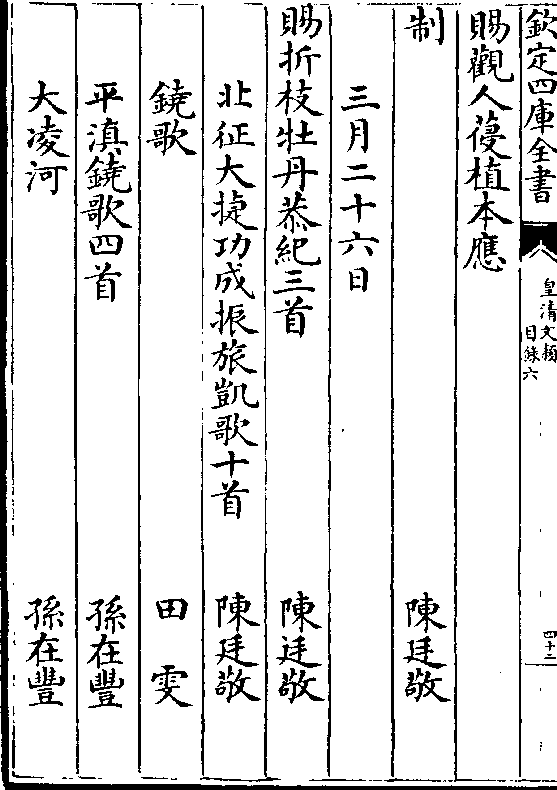 欽定四庫全書
皇清文穎
目錄六
四十二
賜觀人葠植本應
制 陳廷敬
三月二十六日
賜折枝牡丹恭紀三首 陳廷敬
北征大捷功成振旅凱歌十首 陳廷敬
鐃歌 田雯
平滇鐃歌四首 孫在豐
大凌河 孫在豐